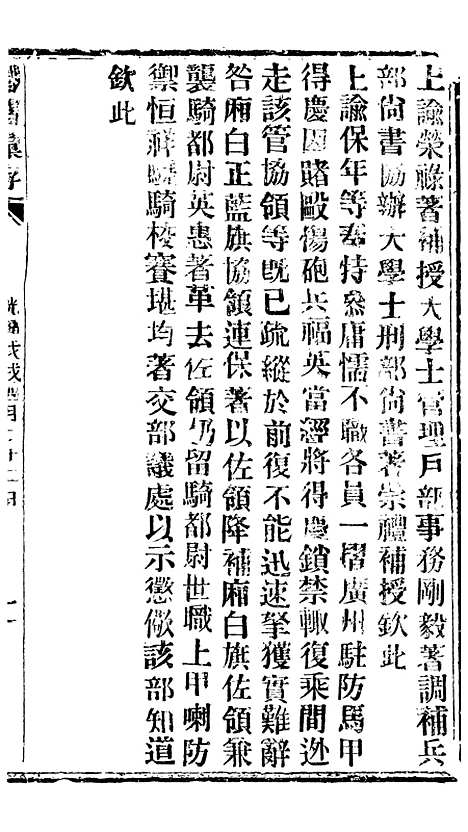 上諭榮祿著補授大學士管理戶部事務剛毅著調補兵
部尚書協辦大學士刑部尚書著崇禮補授欽此
上諭保年等奏特參庸懦不職各員一摺廣州駐防馬甲
得慶因賭毆傷砲兵福英當經將得慶鎖禁輒復乘間逃
走該管協領等既已疏縱於前復不能迅速拏獲實難辭
咎廂白正藍旗協領連保著以佐領降補廂白旗佐領兼
襲騎都尉英惠著革去佐領仍留騎都尉世職上甲喇防
禦恒祥驍騎校賽堪均著交部議處以示懲儆該部知道
欽此
諭摺彙存
光緒戊戌四月二十二日